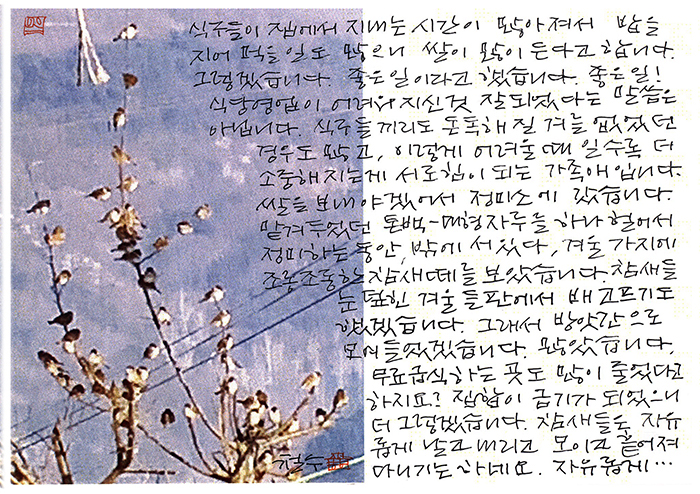 식구들이 집에서 지내는 시간이 많아져서 밥을
지어 먹을 일도 많으니 쌀이 많이 든다고 합니다.
그렇겠습니다. 좋은일이라고 했습니다. 좋은일!
식당영업이 어려워지신것 잘되었다는 말씀은
아닙니다. 식구들끼리도 돈독해질 겨를 없었던
경우도 많고, 이렇게 어려울때 일수록 더
소중해지는게 서로힘이 되는 가족애입니다.
쌀을 보내야겠어서 정미소에 갔습니다.
맡겨두었던 톤백-대형자루를 하나 헐어서
정미하는 동안, 밖에 서 있다, 겨울 가지에
조롱조롱한 참새떼를 보았습니다. 참새들
눈 덮힌 겨울 들판에서 배고프기도
했겠습니다. 그래서 방앗간으로
모여들었겠습니다. 많았습니다.
무료급식하는 곳도 많이 줄었다고
하지요? 집합이 금기가 되었으니
더 그렇겠습니다. 참새들은 자유
롭게 날고 내리고 모이고 흩어져
다니기는 하네요. 자유롭게…
철수